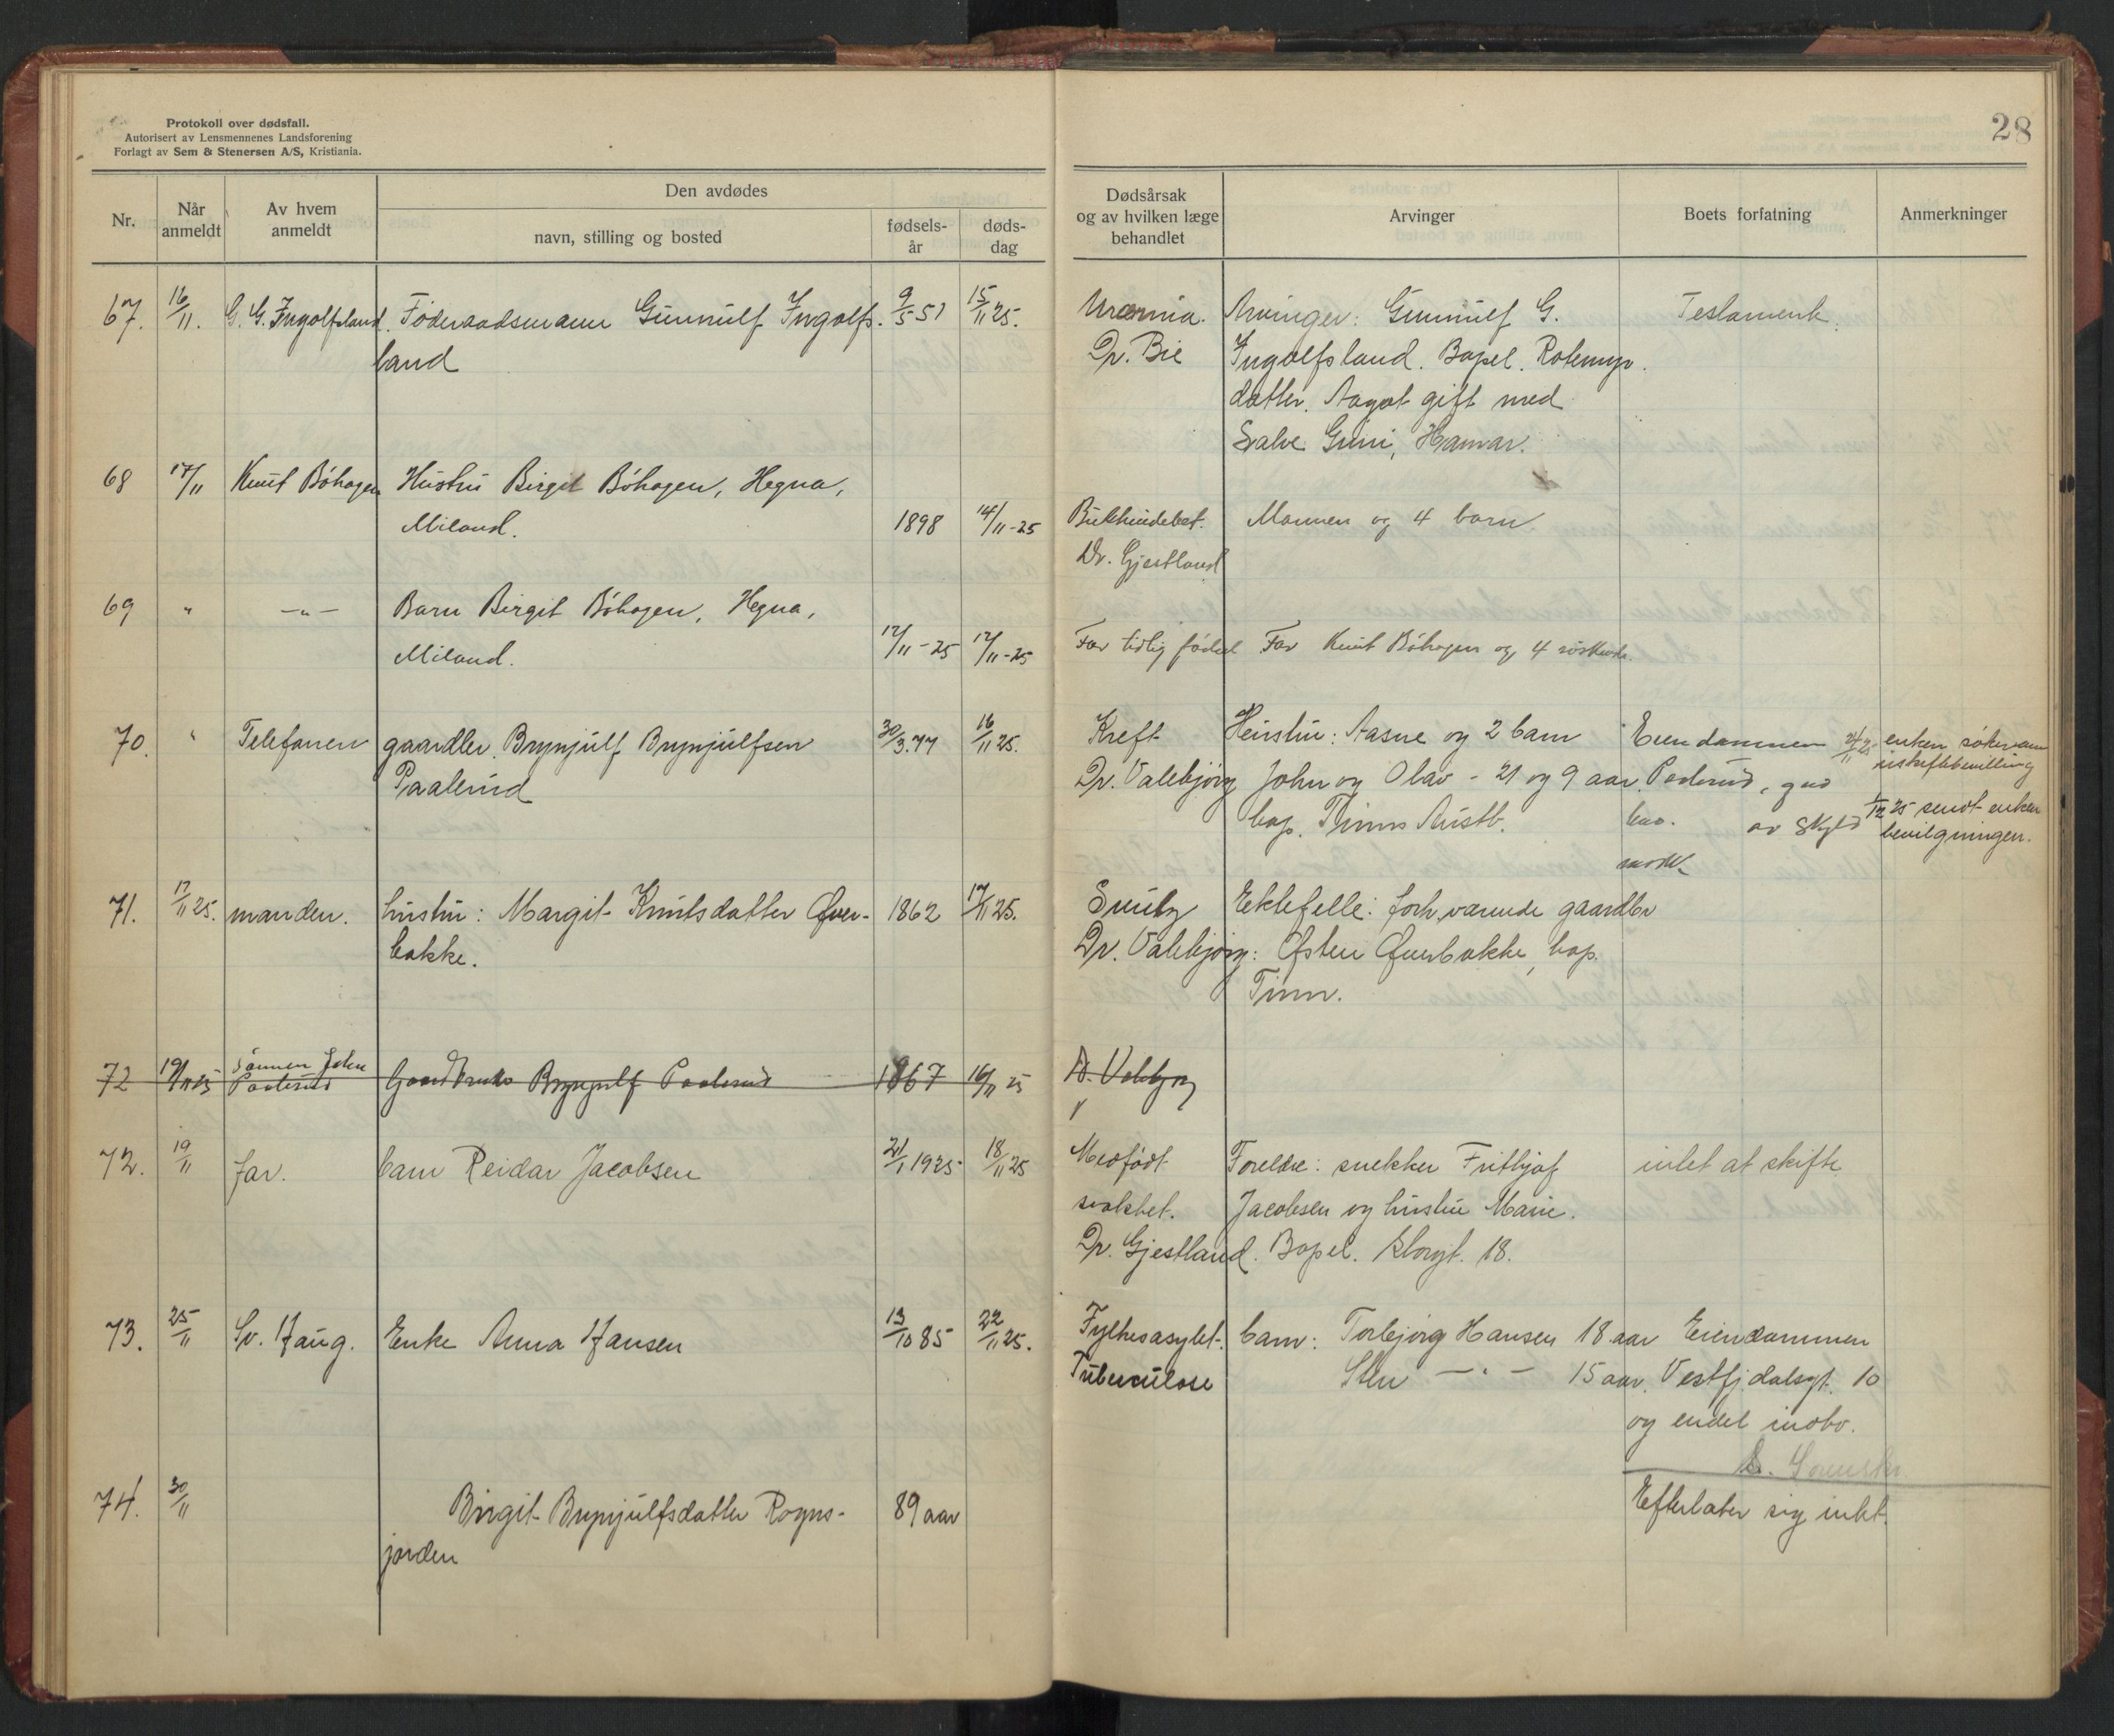 Protokoll over dødsfall.
Autorisert av Lensmennenes Landsforening
Forlagt av Sem & Stenersen A/S, Kristiania.
28
Nr.
Når anmeldt
Av hvem anmeldt
Den avdødes
navn, stilling og bosted
fødsels-år
døds-dag
Dødsårsak og av hvilken læge behandlet
Arvinger
Boets forfatning
Anmerkninger
67. 16/11. G. G. Ingolfsland. Föderaadsmann Gunnulf Ingolfs- 9/5 51 15/11 25. Uræmia. Arvinger: Gunnulf G. Testament.
land Dr. Bie Ingolfsland. Bopel. Rotemyr.
datter. Aagot gift med
Salve Grini, Hamar.
68 17/11 Knut Böhagen Hustru Birgit Böhagen, Hegna,
Miland. 1898 14/11-25 Bukhindebet. Mannen og 4 barn
Dr. Gjestland
69 " —"— Barn Birgit Böhagen, Hegna,
Miland. 12/11-25 12/11-25 For tidlig födsel Far Knut Böhagen og 4 söskende.
70. " Telefonen gaardbr. Brynjulf Brynjulfsen 30/3.77 16/11 25. Kreft Hustru: Aasne og 2 barn Eiendommen enken söker om
uskiftebevilling
Paalerud Dr. Valebjörg John og Olav - 21 og 9 aar. Paalerud,
bop. Tinns Austb. av skyld 1/12 25 sendt enken
bevilgningen.
71. 17/11 25. manden. hustru: Margit Knutsdatter Øver- 1862 17/11 25. Ektefelle: forhværende gaardbr
bakke. Dr. Valebjörg: Østen Øverbakke, bop.
Tinn.
72 19/11 25 Sönnen John
Paalerud Gaardbruker Brynjulf Paalerud 1867 16/11 25 Dr. Valebjørg
72. 19/11 far. barn Reidar Jacobsen 21/1 1925 18/11 25 Medfödt Foreldre: snekker Frithjof intet at skifte
svakhet. Jacobsen og hustru Marie.
Dr. Gjestland. Bopel. Storgt. 18.
73. 25/11 Sv. Haug. Enke Anna Hansen 13/10 85 22/11 25. Fylkesasylet. barn: Torbjörg Hansen 18 aar Eiendommen
Tuberculose Sten —"— 15 aar. Vestfjdalsgt. 10
og endel indbo.
74. 30/11 Birgit Brynjulfsdatter Rogns- 89 aar Efterlater sig intet.
jorden